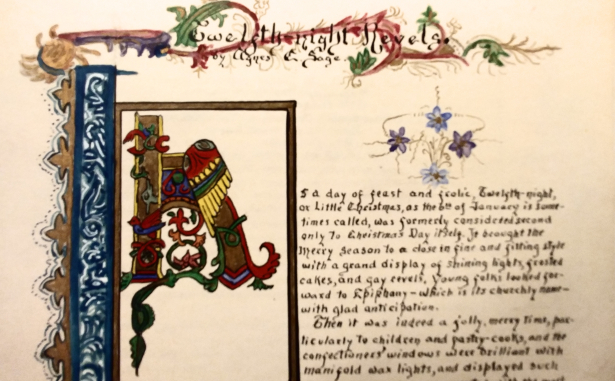 Twelfth-night Revels.
by Agnes E. Sage.
A
S a day of feast and frolic, Twelfth-night,
or Little Christmas, as the 6th of January is some-
times called, was formerly considered second
only to Christmas Day itself. It brought the
merry season to a close in fine and fitting style
with a grand display of shining lights, frosted
cakes, and gay revels. Young folks looked for-
ward to Epiphany – which is its churchly name –
with glad anticipation.
Then it was indeed a jolly, merry time, par-
ticularly to children and pastry-cooks, and the
confectioners' windows were brilliant with
manifold wax lights, and displayed such